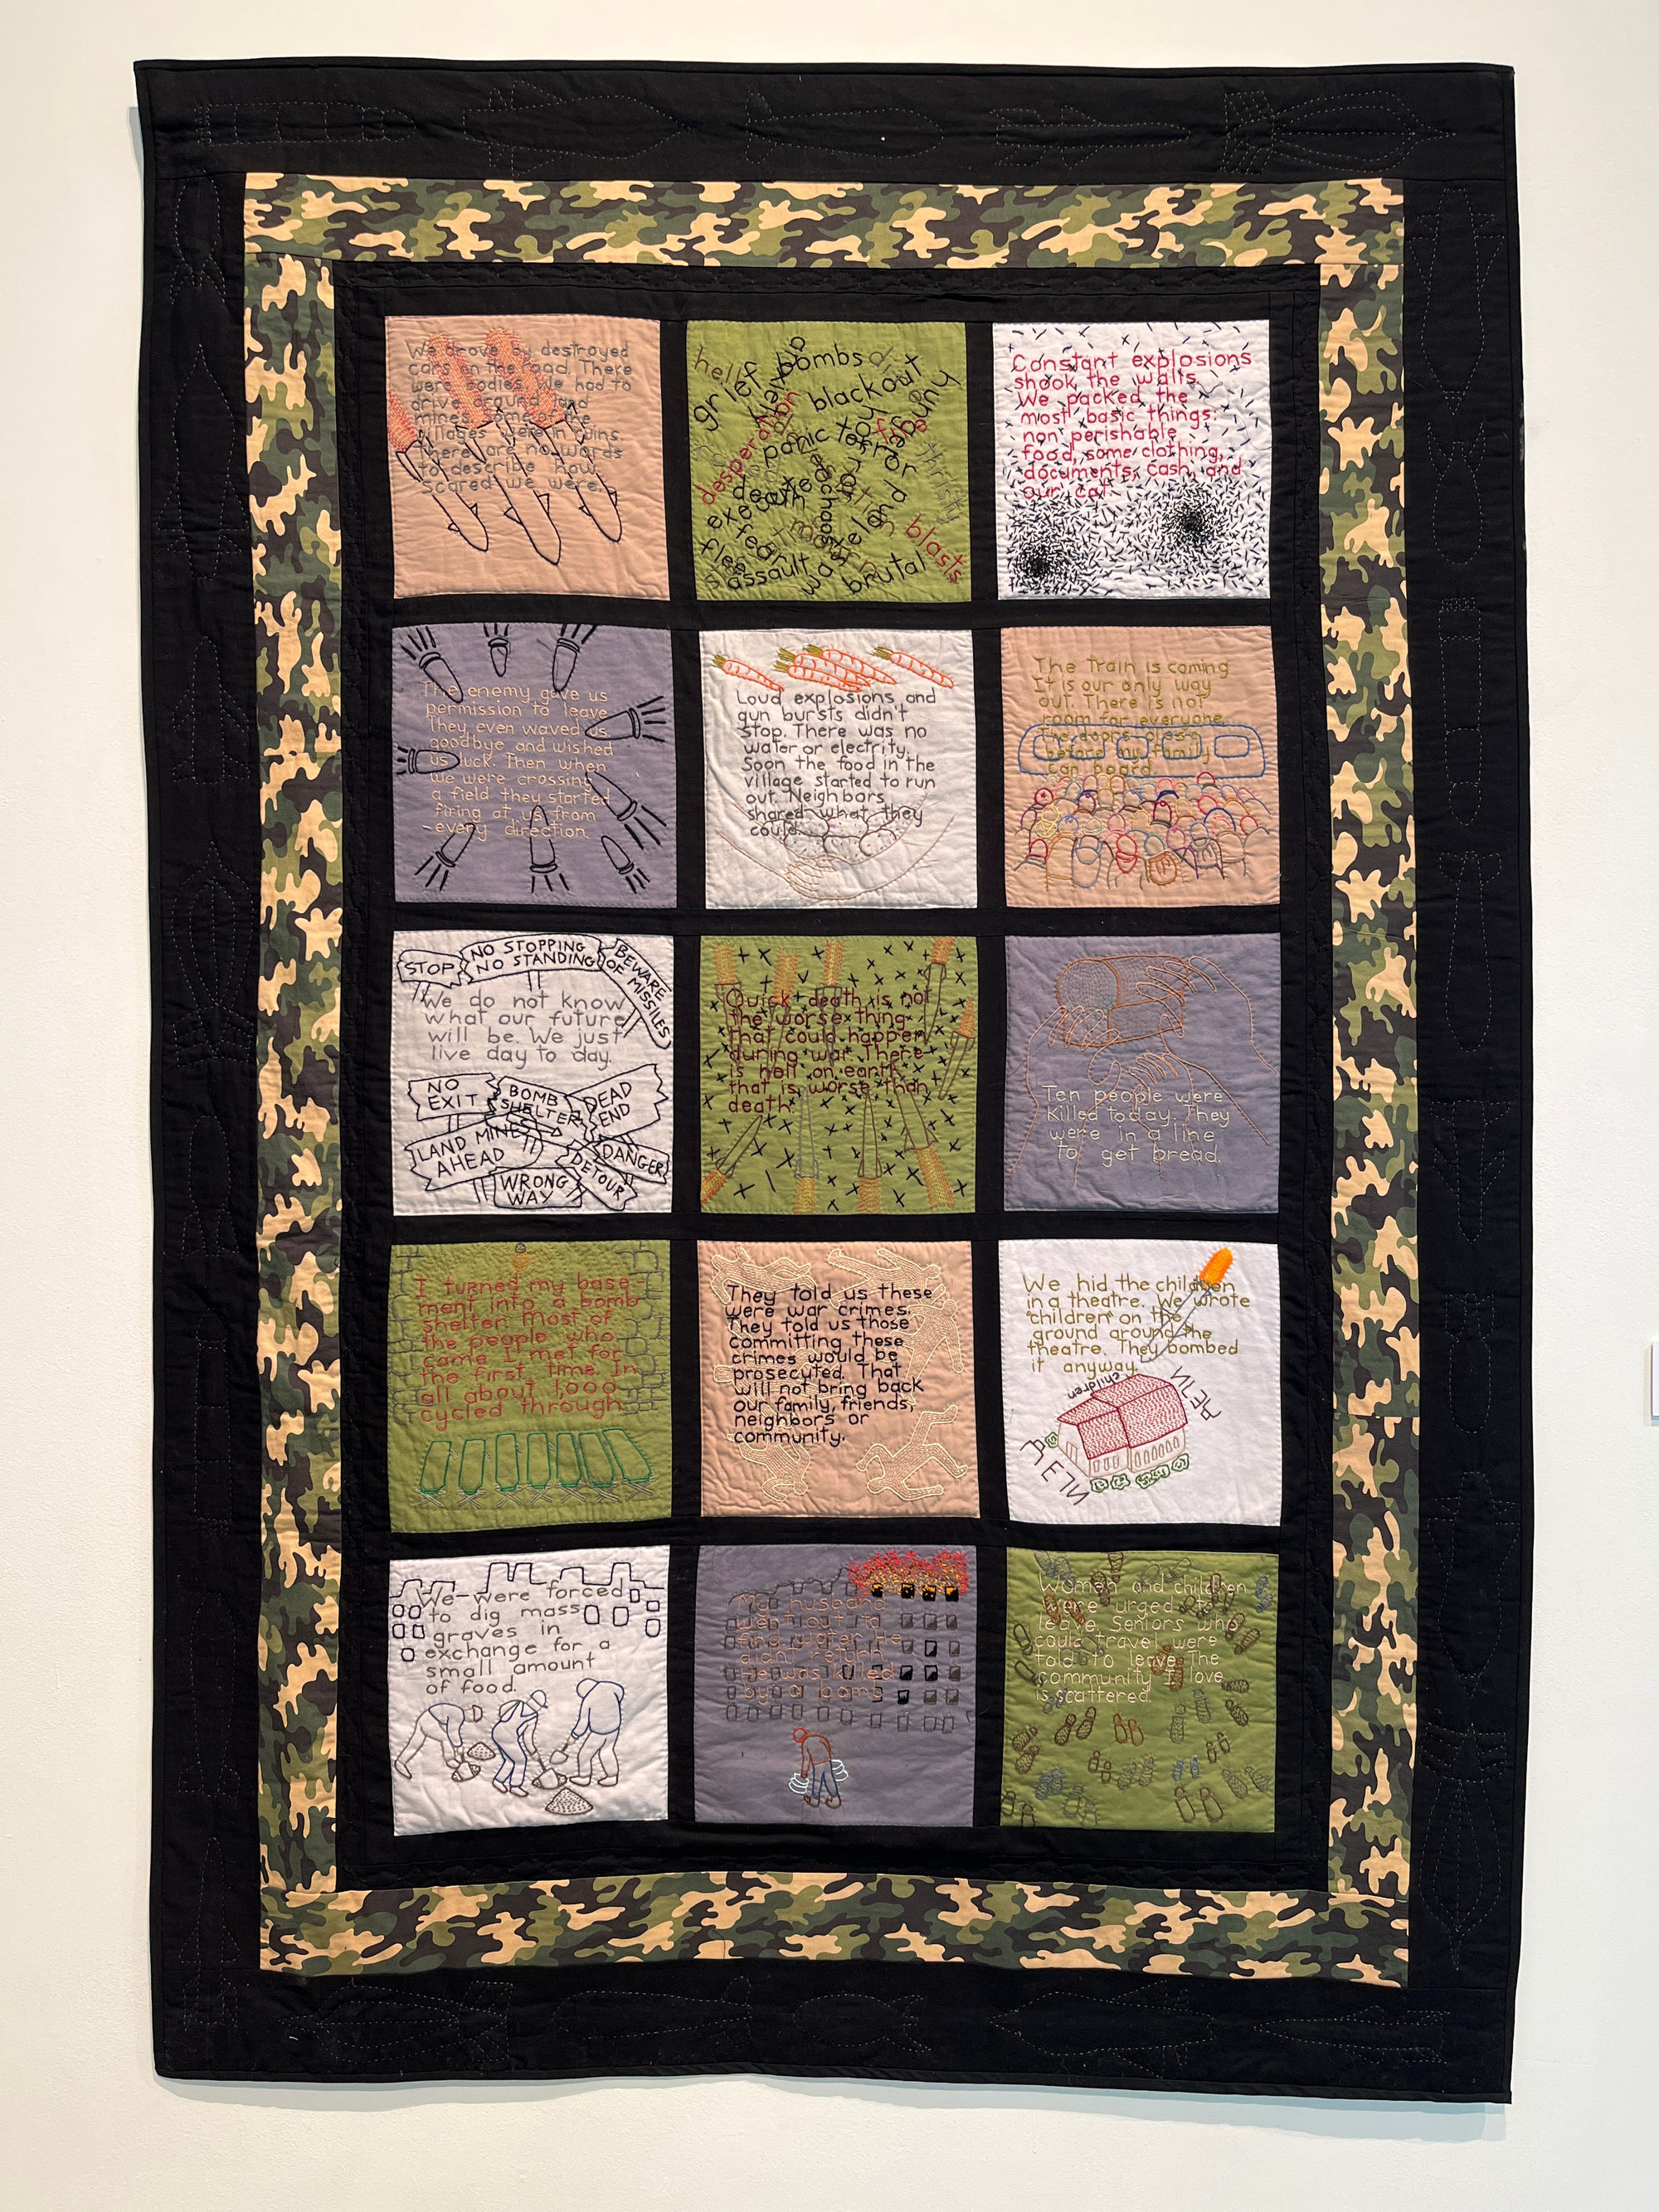 We drove by destroyed
cars on the road. There
were bodies. We had to
drive around and
mines. Some of the
villages were in ruins.
There are no words
to describe how
scared we were.
hell
grief
bombs
blackout
desperation
panic
terror
death
thirsty
blasts
flee
assault
brutal
Constant explosions
shook the walls.
We packed the
most basic things:
non perishable
food, some clothing,
documents, cash, and
our cat.
The enemy gave us
permission to leave
They even waved us
goodbye and wished
us luck. Then when
we were crossing
a field they started
firing at us from
every direction.
Loud explosions and
gun bursts didn't
stop. There was no
water or electrity.
Soon the food in the
village started to run
out. Neighbars
shared what they
could.
The train is coming
It is our only way
out. There is not
room for everyone.
The doors close
before my family
can board.
STOP
NO STOPPING
NO STANDING
BEWARE
OF MISSILES
We do not know
what our future
will be. We just
live day to day.
NO
EXIT
BOMB
SHELTER
DEAD
END
LAND MINES
AHEAD
DANGER
DETOUR
WRONG
WAY
Quick death is not
the worse thing
that could happen
during war. There
is hell on earth
that is worse than
death.
Ten people were
killed today. They
were in a line
to get bread.
I turned my base-
ment into a bomb
shelter. Most of
the people who
came I met for
the first time. In
all about 1,000
cycled through
They told us these
were war crimes.
They told us those
committing these
crimes would be
prosecuted. That
will not bring back
our family, friends,
neighbors or
community.
We hid the children
in a theatre. We wrote
"children" on the
ground around the
theatre. They bombed
it anyway.
children
We were forced
to dig mass
graves in
exchange for a
small amount
of food.
My husband
went out to
find water. He
didnt return
He was killed
by a bomb
Women and children
were urged to
leave. Seniors who
could travel were
told to leave. The
community I love
is scattered.